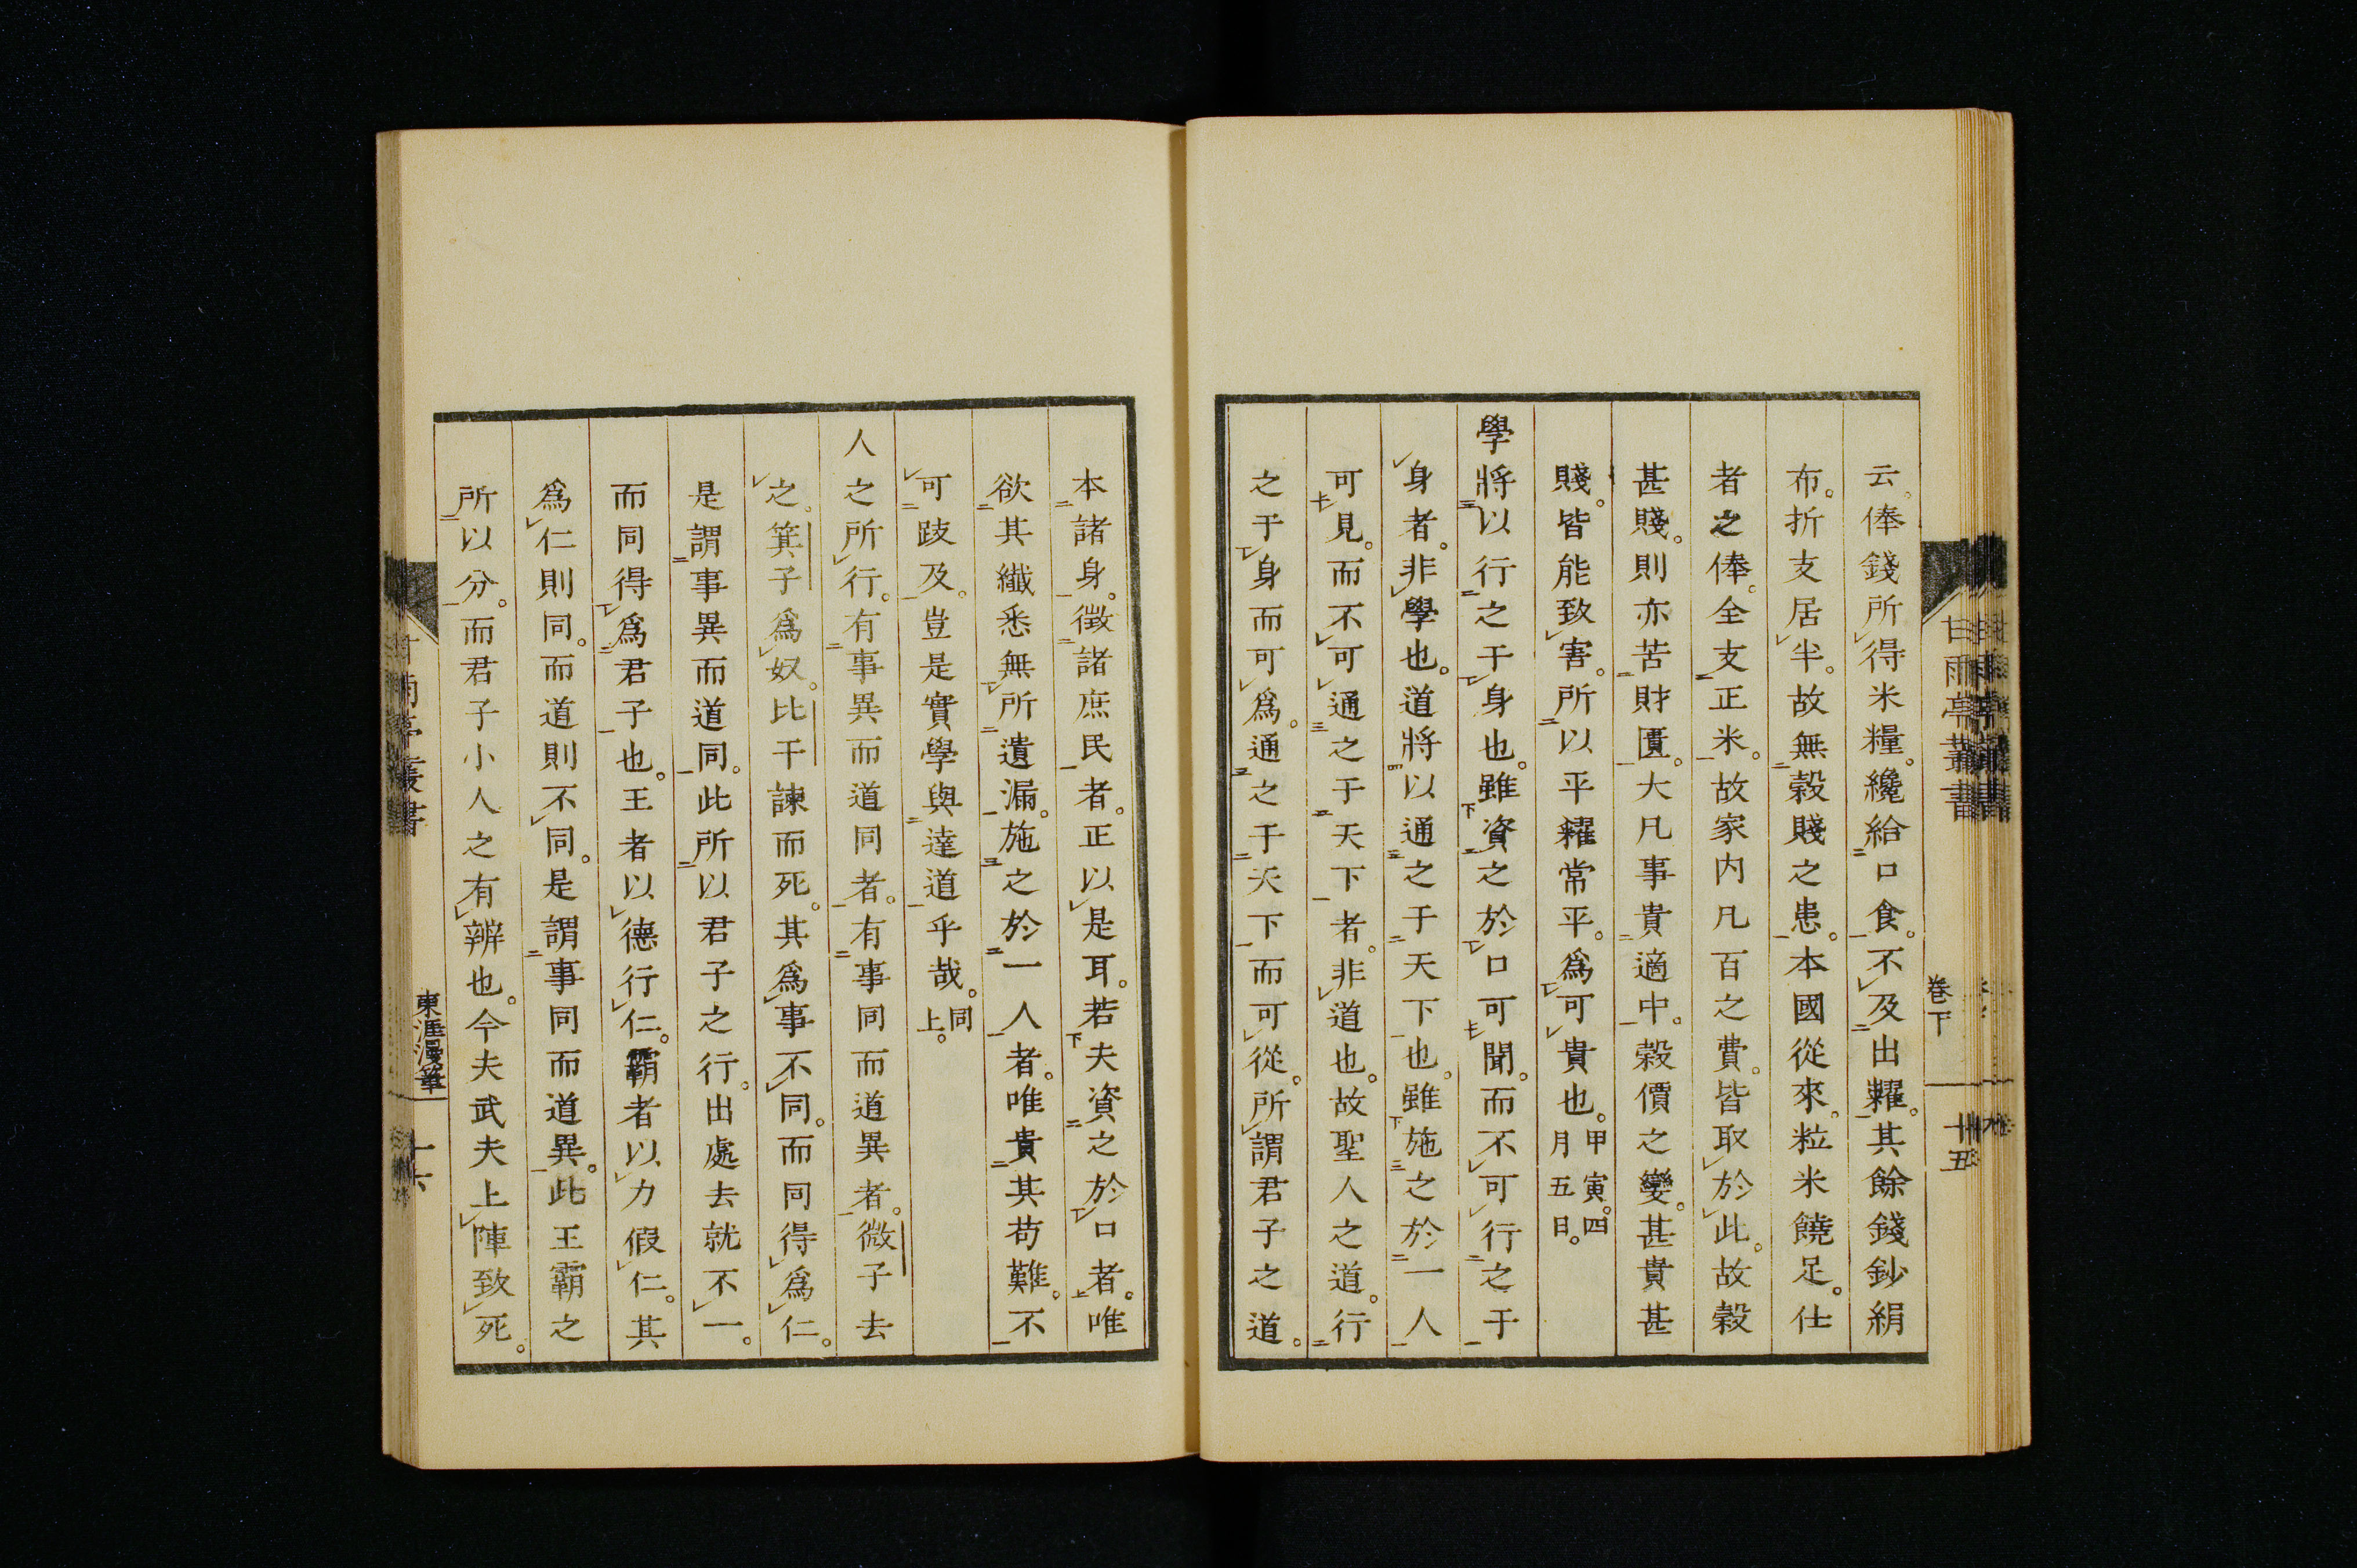 云。俸錢所得米糧。纔給口食。不及出糶。其餘錢鈔絹
布。折支居半。故無穀賤之患。本國從來。粒米饒足。仕
者之俸。全支正米。故家内凡百之費。皆取於此。故穀
甚賤。則亦苦財匱。大凡事貴適中。穀價之變。甚貴甚
賤。皆能致害。所以平糶常平。爲可貴也。甲寅。四月五日。
學將以行之于身也。雖資之於口可聞。而不可行之于
身者。非學也。道將以通之于天下也。雖施之於一人
可見。而不可通之于天下者。非道也。故聖人之道。行
之于身而可爲。通之于天下而可從。所謂君子之道。
甘雨亭叢書
卷下
卅五
本諸身。徵諸庶民者。正以是耳。若夫資之於口者。唯
欲其纖悉無所遺漏。施之於一人者。唯貴其苟難。不
可跂及。豈是實學與達道乎哉。同上。
人之所行。有事異而道同者。有事同而道異者。微子去
之。箕子爲奴。比干諫而死。其爲事不同。而同得爲仁。
是謂事異而道同。此所以君子之行。出處去就不一。
而同得爲君子也。王者以德行仁。霸者以力假仁。其
爲仁則同。而道則不同。是謂事同而道異。此王霸之
所以分。而君子小人之有辨也。今夫武夫上陣致死。
東涯漫筆